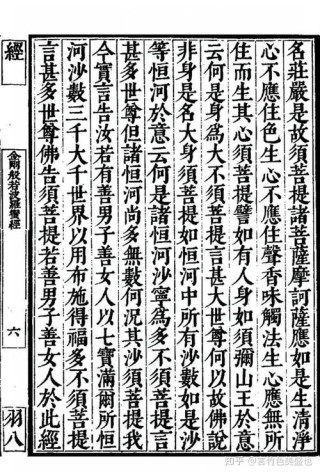 名莊嚴是故須菩提諸菩薩摩訶薩應如是生清淨
心不應住色生心不應住聲香味觸法生心應無所
住而生其心須菩提譬如有人身如須彌山王於意
云何是身為大不須菩提言甚大世尊何以故佛說
非身是名大身須菩提如恒河中所有沙數如是沙
等恒河於意云何是諸恒河沙寧為多不須菩提言
甚多世尊但諸恒河尚多無數何況其沙須菩提我
今實言告汝若有善男子善女人以七寶滿爾所恒
河沙數三千大千世界以用布施得福多不須菩提
言甚多世尊佛告須菩提若善男子善女人於此經
經
金剛般若波羅蜜經
六
羽八
知乎